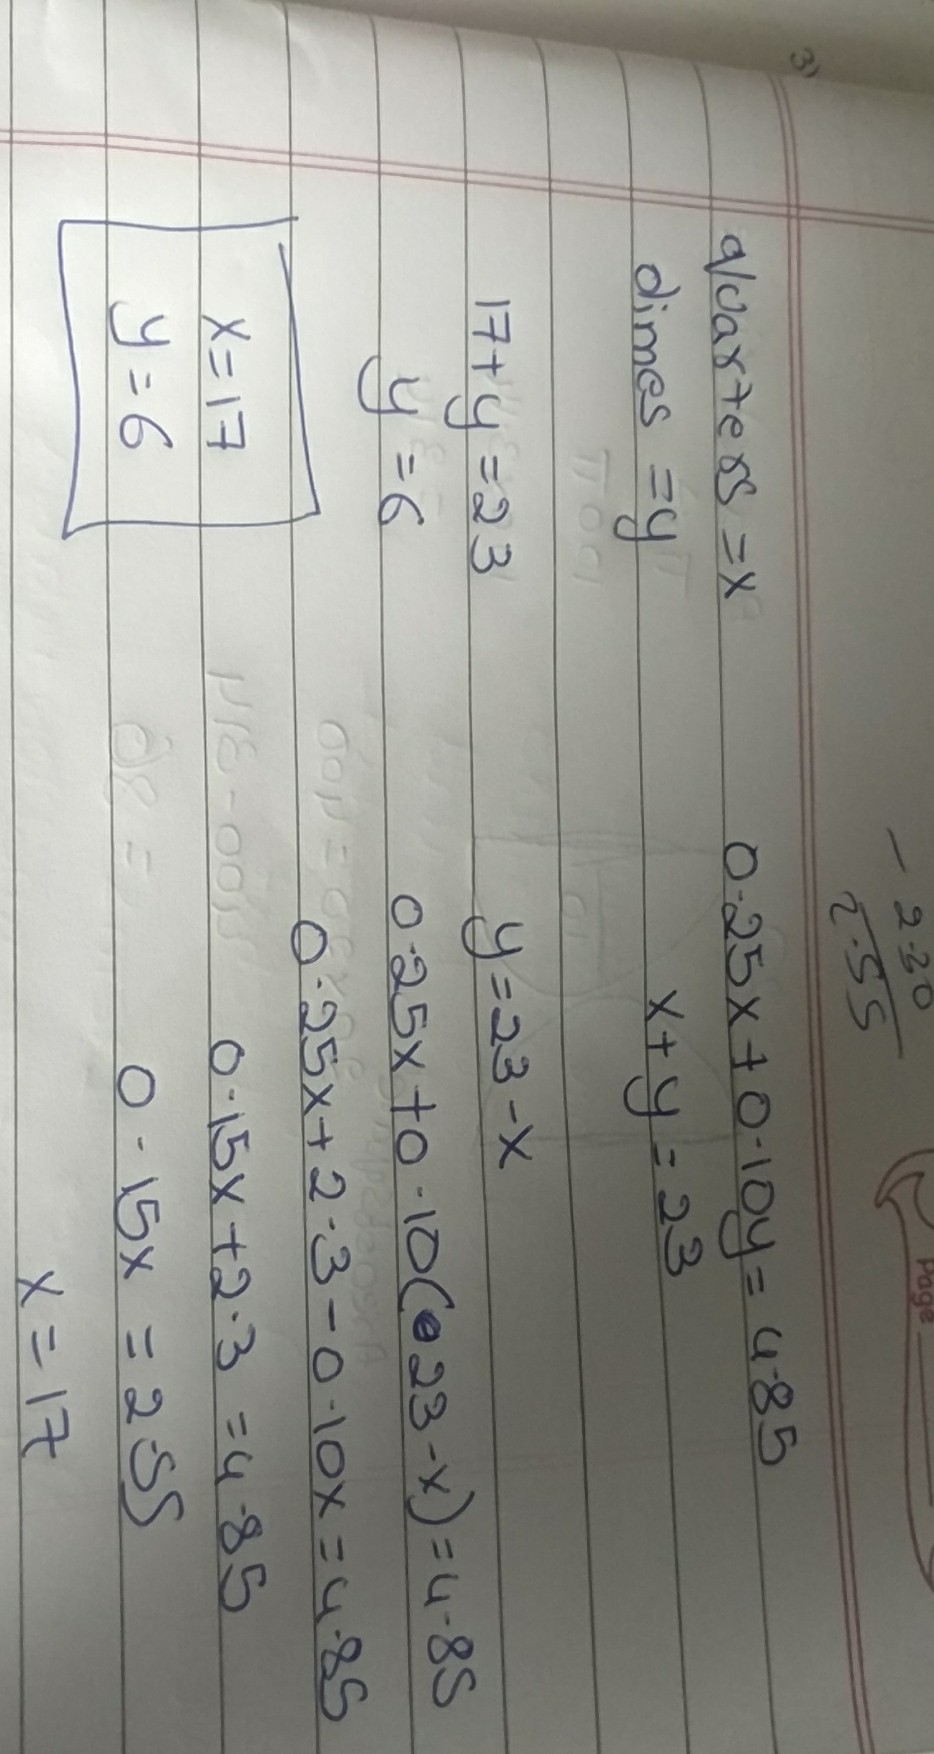 Page
- 2.30
2.55
3)
quarters = x 0.25x + 0.10y = 4.85
dimes = y x + y = 23
17 + y = 23 y = 23 - x
y = 6 0.25x + 0.10(23 - x) = 4.85
0.25x + 2.3 - 0.10x = 4.85
x = 17 0.15x + 2.3 = 4.85
y = 6 0.15x = 2.55
x = 17